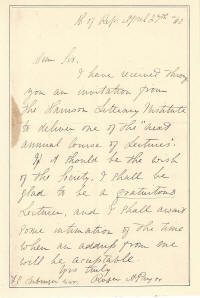 H of Reps. April 27th '60
Dear Sir.
I have received through
you an invitation from
the Harrison Literary Institute
to deliver one of the "next
annual Course of lectures".
If it should be the wish
of the Society, I shall be
glad to be a gratuitous
Lecturer, and I shall await
some intimation of the time
when an address from me
will be acceptable
Yrs truly
Roger A Pryor